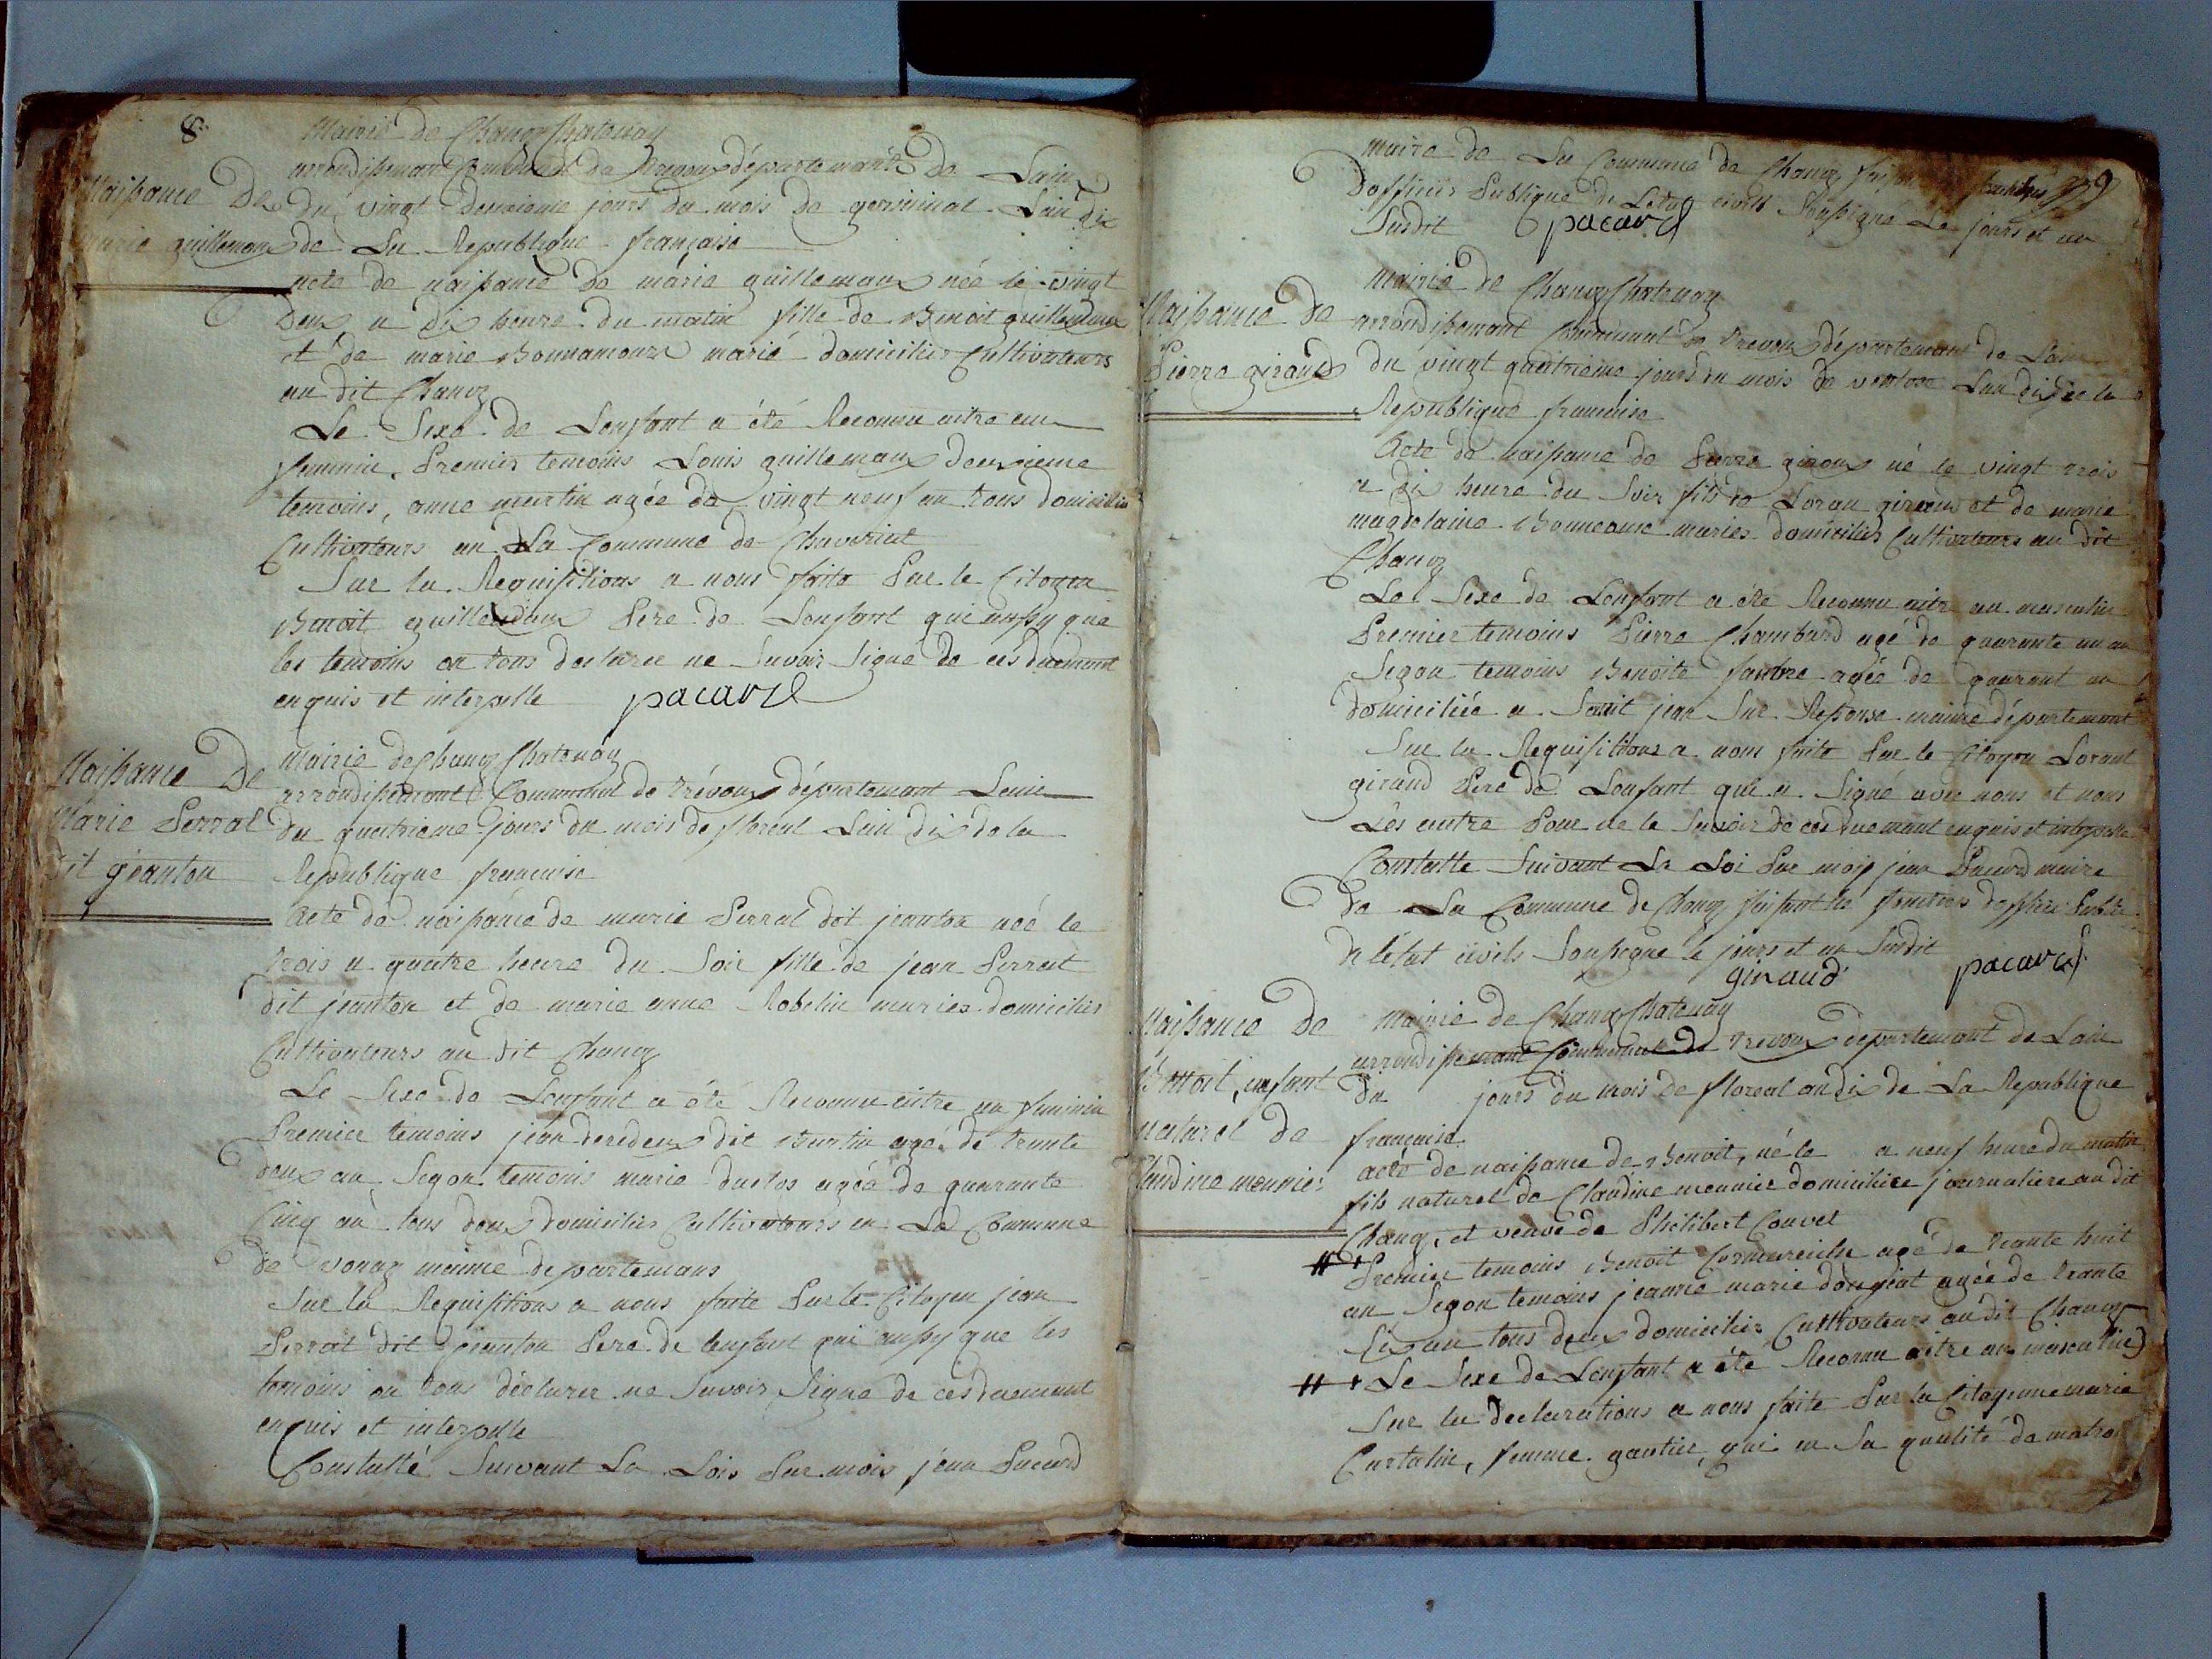 8
Mairie de Chanoz Chatenay
arrondissemant Communal de Trevoux départemants de Lain
Naissance De
du vingt deuxieme jours du mois de germinal Lan dix
marie guillemaux
de La Republique française
acte de naissance de marie guillemaux née le vingt
deux a dix heure du matin fille de Benoit guillemaux
et de marie Bonnamour marié domiciliés Cultivateurs
au dit Chanoz
Le Sexe de Lenfant a été Reconnu aitre un
feminin. Premier temoins Louis guillemaux deuxieme
temoins, anne martin agée de vingt neuf an tous domiciliés
Cultivateurs an La Commune de Chaveriat
Sur la Requisitions a nous faite Par le Citoyen
Benoit guillemaux Pere de Lenfant qui aussy que
les temoins on tous declaree ne Savoir Signe de ces duemant
enquis et interpelle pacard
Mairie de Chanoz Chatenay
Naissance De
arrondissemant Communal de trévoux département Lain
Marie Perrat
du quatrieme jours du mois de floreal Lan dix de la
dit jeanton
Republique francaise
Acte de naissance de marie Perrat dit jeanton née le
trois a quatre heure du Soir fille de jean Perrat
dit jeanton et de marie anne Robelin mariés domiciliés
Cultivateurs au dit Chanoz
Le Sexe de Lenfant a été Reconnu aitre un feminin
Premier temoins jean deredeux dit Burtin agé de trante
deux an Segon temoins marie duclos agée de quarante
Cinq an tous deux domiciliés Cultivateurs en La Commune
de vonaz maime departemans
Sur la Requisitions a nous faite Par le Citoyen jean
Perrat dit jeanton Pere de lenfant qui aussy que les
temoins on tous déclarer ne Savoir Signe de ces duemant
enquis et interpelle
Constatté Suivant La Lois Par mois jean Pacard
maire de La Commune de Chanoz
9
Dofficiés Publique de Letat civils Soussigné Le jours et an
Susdit pacard
Mairie de Chanoz Chatenay
Naissance De
arrondissemant Communal de trevoux département de Lain
Pierre giraud
du vingt quatrieme jours du mois de ventose Lan dix de la
Republique francaise
Acte de naissance de Pierre giraud né le vingt trois
a dix heure du Soir fils de Loran giraud et de marie
magdelaine Bonneame mariés domiciliés Cultivateurs au dit
Chanoz
Le Sexe de Lenfant a été Reconnu aitre un masculin
Premier temoins Pierre Chambard agé de quarante un an
Segon temoins Benoite faivre agée de quarant an
domiciliée a Saint jean Sur Reisouse maime département
Sur la Requisitions a nous faite Par le Citoyen Lorant
giraud Pere de Lenfant qui a Signé avec nous et nous
Les autre Pour ne le Savoir de ces duemant enquis et interpelle
Constatté Suivant La Loi Par moy jean Pacard maire
de La Commune de Chanoz faisant les fonctions dofficié Public
de létat civils Soussigne le jours et an Susdit
giraud pacard
Naissance De
Mairie de Chanoz Chatenay
arrondissemant Communal de trevoux departemant de Lain
Benoit, enfant
du jours du mois de floreal an dix de La Republique
naturel de
francaise
Claudine meunier
acte de naissance de Benoit, né le a neuf heure du matin
fils naturel de Claudine meunier domiciliée journaliere au dit
Chanoz, et veuve de Philibert Couvet
# Premier temoins Benoit agé de trante huit
an Segon temoins jeanne marie dongeat agée de trante
Six an tous deux domiciliés Cultivateurs au dit Chanoz
# Le Sexe de Lenfant a été Reconnu aitre un masculin
Sur la declarations a nous faite Par la Citoyenne marie
Curtalin, femme gautier, qui en Sa qualité de matro